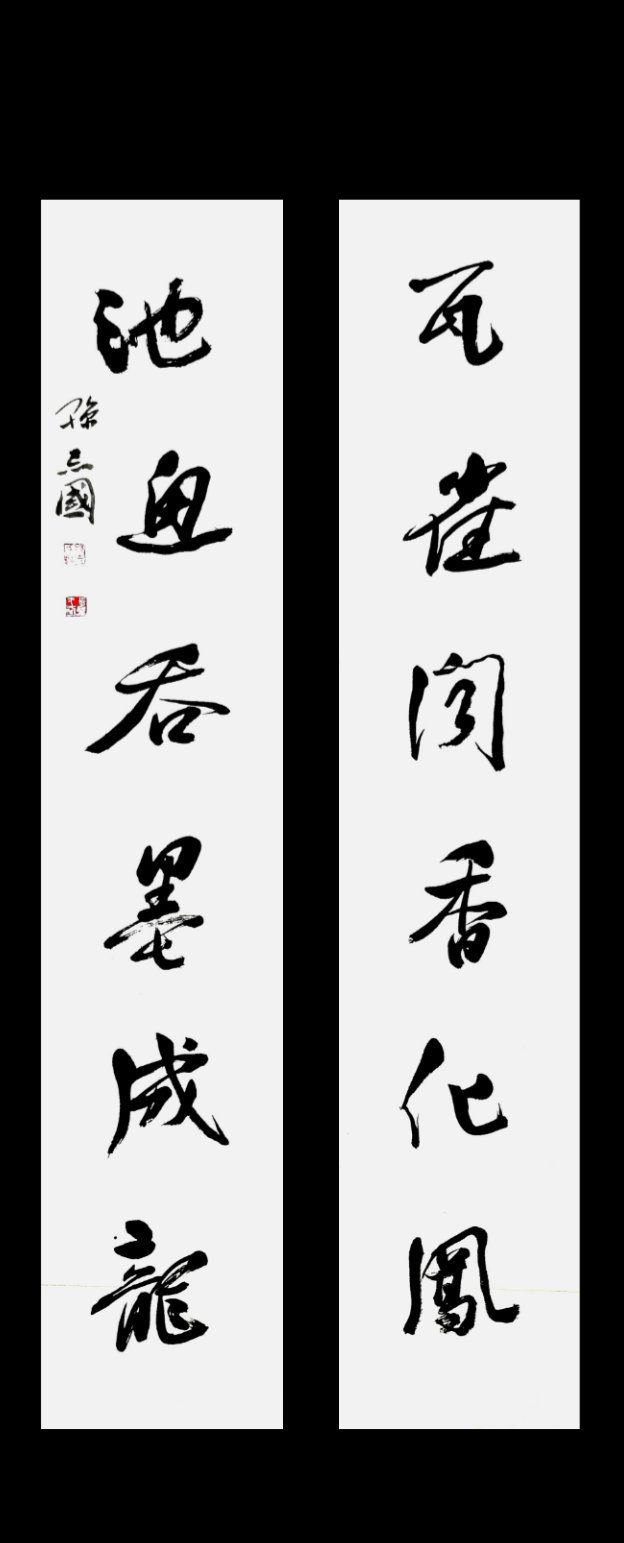 瓦雀闻香化鳳
池魚吞墨成龍
孫志國